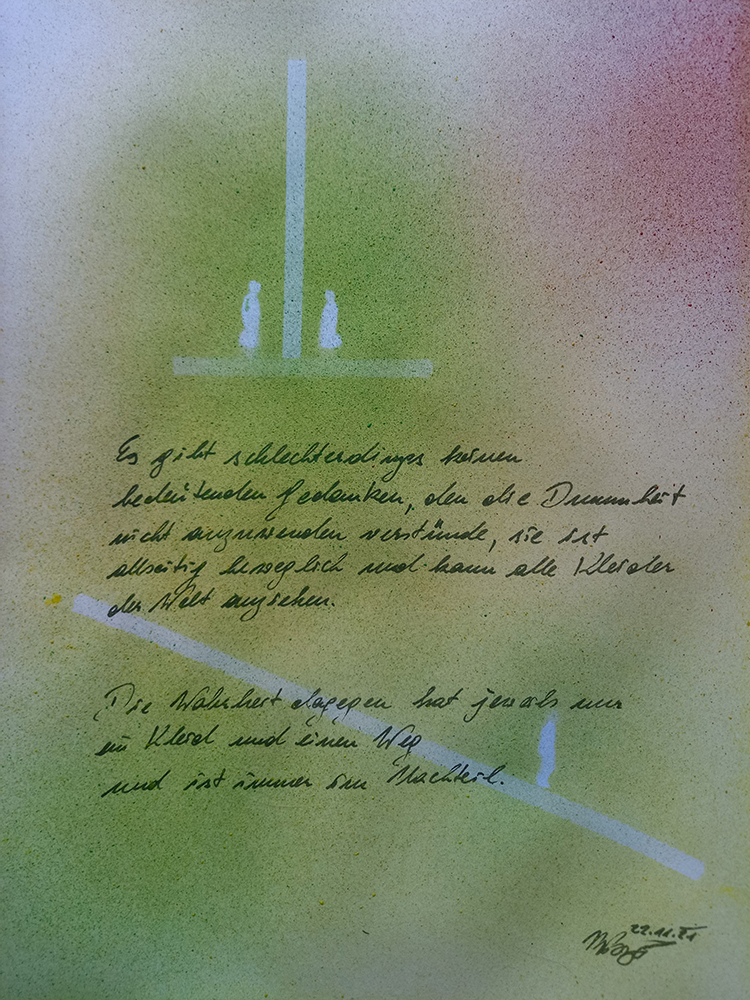 Es gibt schlechterdings keinen
bedeutenden Gedanken, den die Dummheit
nicht anzuwenden verstünde, sie ist
allseitig beweglich und kann alle Kleider
der Welt anziehen.
Die Wahrheit dagegen hat jeweils nur
ein Kleid und einen Weg
und ist immer im Nachteil.
22.11.21